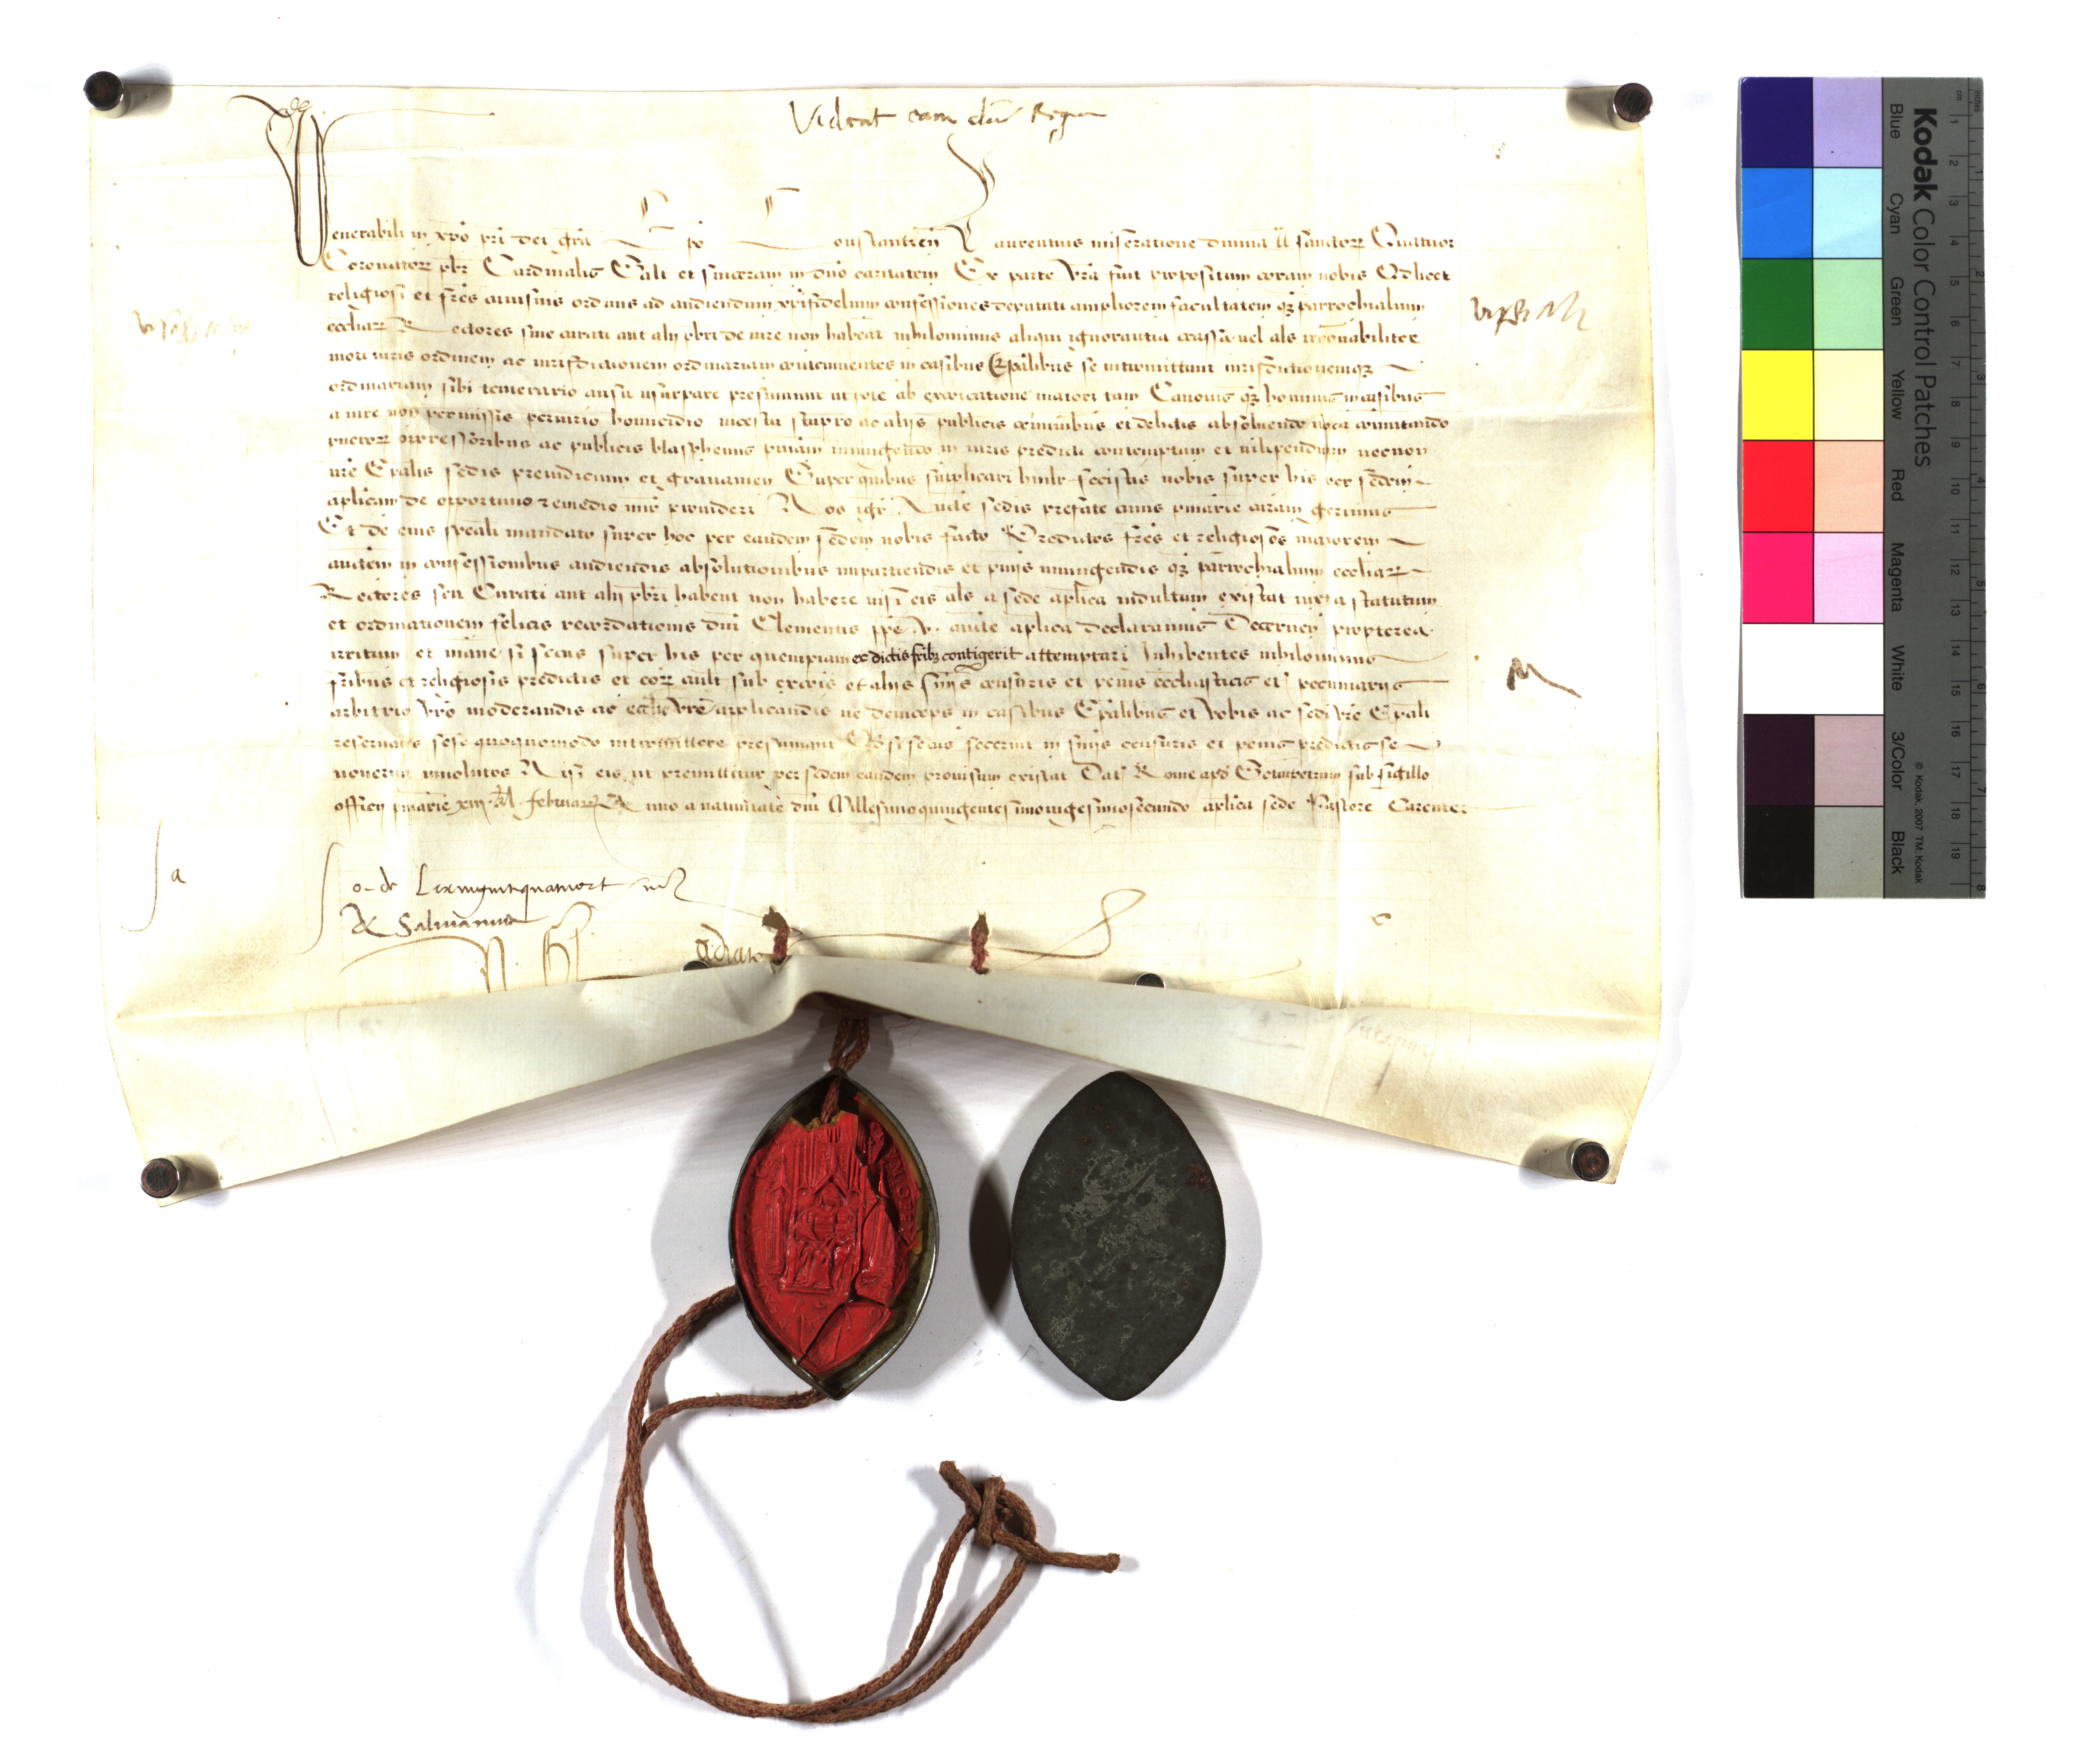 Videat eam dn̄s Regen
Venerabili in xp̄o pr̄i dei gr̄a Ep̄o Constantien̄ Laurentius miseratione diuina tt̄ sanctorꝝ Quatuor
Coronatorꝝ pbr̄ Cardinalis Sal̄t et sinceram in dn̄o caritatem Ex parte vr̄a fuit propositum coram nobis Qd̄ licet
religiosi et fr̄es cuiusuis ordinis ad audiendum xp̄ifidelium confessiones deputati ampliorem facultatem qꝫ parrochialium
eccliarꝝ Rectores siue curati aut alij pbr̄i de iure non habeāt nihilominus aliqui ignorantia crassa uel als irrōnabiliter
moti iuris ordinem ac iurisdictionem ordinariam contemnentes in casibus Ep̄alibus se intromittunt iurisdictionemqꝫ
ordinariam sibi temerario ausu usurpare presumunt ut pote ab excōicatione maiori tam Canonis qꝫ hominis in casibus
a iure non permissis periurio homicidio incestu stupro ac alijs publicis criminibus et delictis absoluendo vota cōmutando
puerorꝝ oppressoribus ac publicis blasphemis pn̄iam iniungendo in iuris predicti contemptum et uilipendium necnon
vr̄e Ep̄alis sedis preiudicium et grauamen Super quibus supplicari humilr̄ fecistis nobis super his per sedem
aplicam de oportuno remedio mir̄ prouideri Nos igr̄ Aucte sedis prefate cuius pn̄iarie curam gerimus
Et de eius speāli mandato super hoc per eandem sedem nobis facto Predictos fr̄es et religiosos maiorem
auctem in confessionibus audiendis absolutionibus impartiendis et pn̄ijs iniungendis qꝫ parrochialium eccliarꝝ
Rectores seu Curati aut alij pbr̄i habent non habere nisi eis als a sede aplica indultum existat iuxta statutum
et ordinationem felicis recordationis dn̄i Clementis pp̄e .v. aucte aplica declaramus Decernen̄ propterea
irritum et inane si secus super his per quempiam ex dictis fribꝫ contigerit attemptari Inhibentes nihilominus
fribus et religiosis predictis et eorꝝ cuilt̄ sub excōis et alijs sn̄ijs censuris et penis eccliasticis et pecuniarijs
arbitrio vr̄o moderandis ac ecclie vr̄e applicandis ne deinceps in casibus Ep̄alibus et vobis ac sedi vr̄e Ep̄ali
reseruatis sese quoquomodo intromittere presumant Qd̄ si secus fecerint in sn̄ijs censuris et penis predictis se
nouerint inuolutos Nisi eis ut premittitur per sedem eandem prouisum existat Dat̄ Rome apd̄ Sctūmpetrum sub sigillo
officij pn̄iarie xiij kl̄ februarꝝ Anno a natiuitate dn̄i Millesimoquingentesimouigesimosecundo aplica sede Pastore Carente
M
a
Jo. de
A Salmanus
Kodak Color Control Patches
Blue Cyan Green Yellow Red Magenta White 3/Color Black
© Kodak, 2007 TM: Kodak
cm 1 2 3 4 5 6 7 8 9 10 11 12 13 14 15 16 17 18 19
inches 1 2 3 4 5 6 7 8